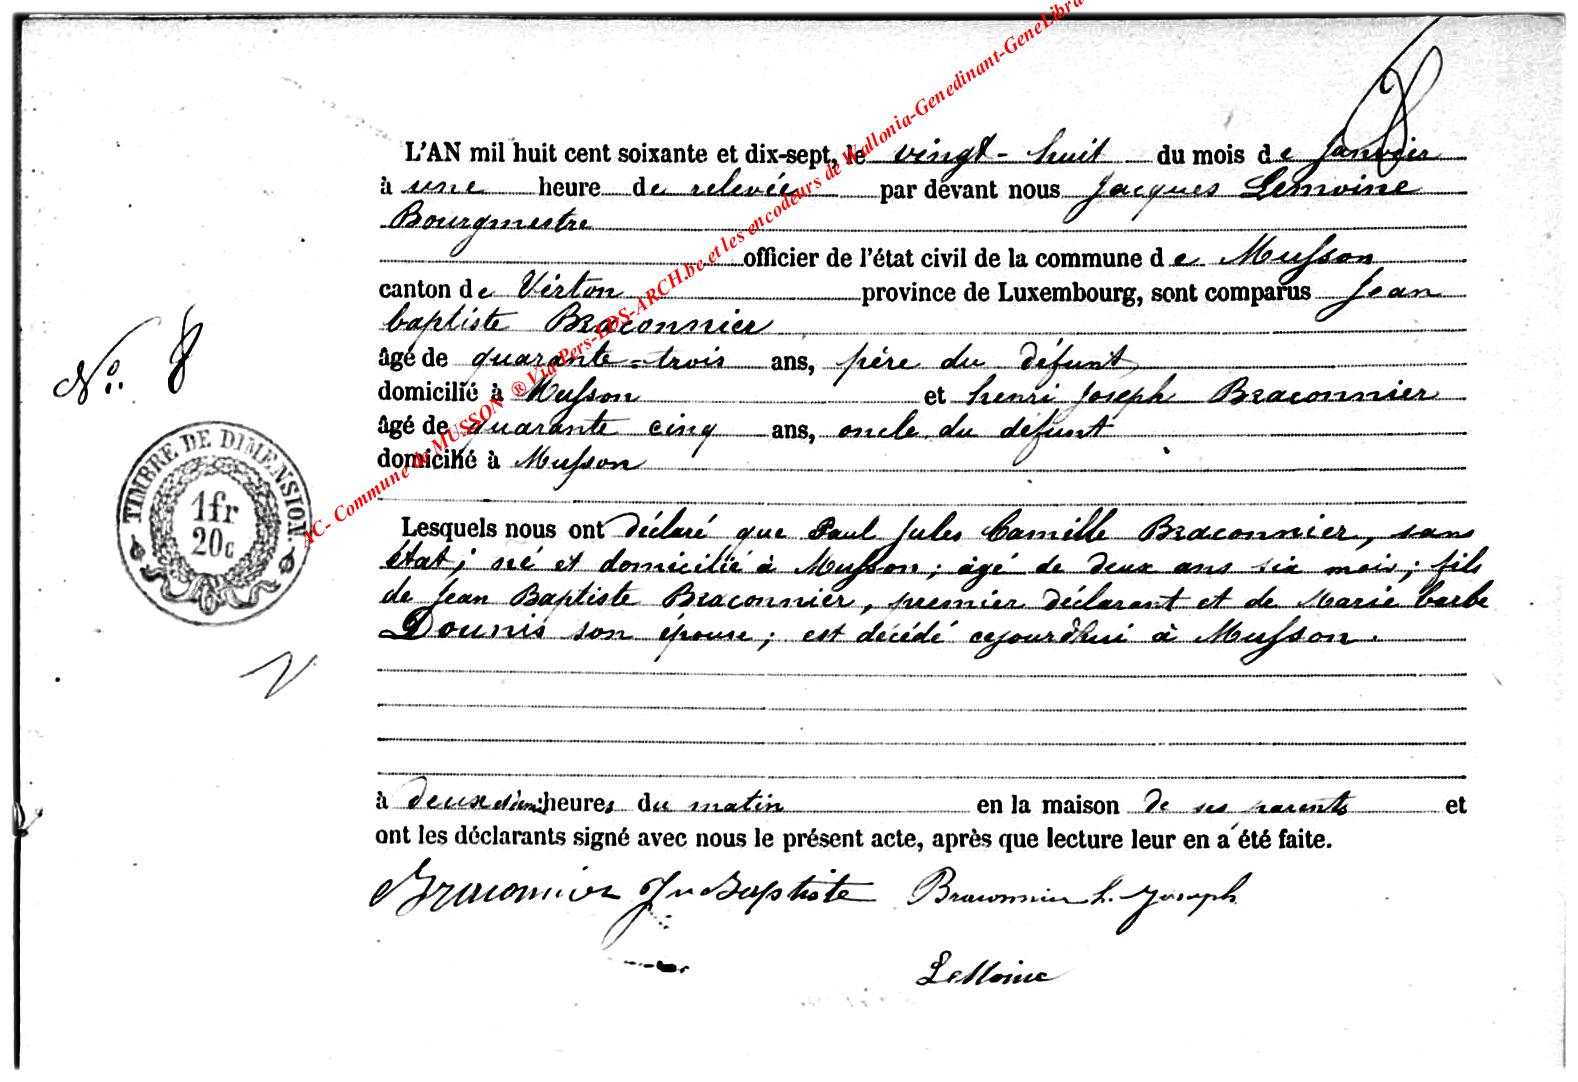 AC- Commune de MUSSON ® Via Pers-EDS-ARCH.be et les encodeurs de Wallonia-Genedinant-GeneLibra
8
L'AN mil huit cent soixante et dix-sept, le vingt-huit du mois de Janvier
à une heure de relevée par devant nous Jacques Lemoine
Bourgmestre
officier de l'état civil de la commune de Musson
canton de Virton province de Luxembourg, sont comparus Jean
baptiste Braconnier
âgé de quarante-trois ans, père du défunt
No. 8
domicilié à Musson et henri Joseph Braconnier
âgé de quarante cinq ans, oncle du défunt
domicilié à Musson
TIMBRE DE DIMENSION
1fr
20c
Lesquels nous ont déclaré que Paul Jules Camille Braconnier, sans
état; né et domicilié à Musson; âgé de deux ans six mois; fils
de Jean Baptiste Braconnier, premier déclarant et de Marie barbe
Dounis son épouse; est décédé cejourd'hui à Musson.
à deux et demi heures du matin en la maison de ses parents et
ont les déclarants signé avec nous le présent acte, après que lecture leur en a été faite.
Braconnier Jn Baptiste Braconnier h. Joseph
LeMoine